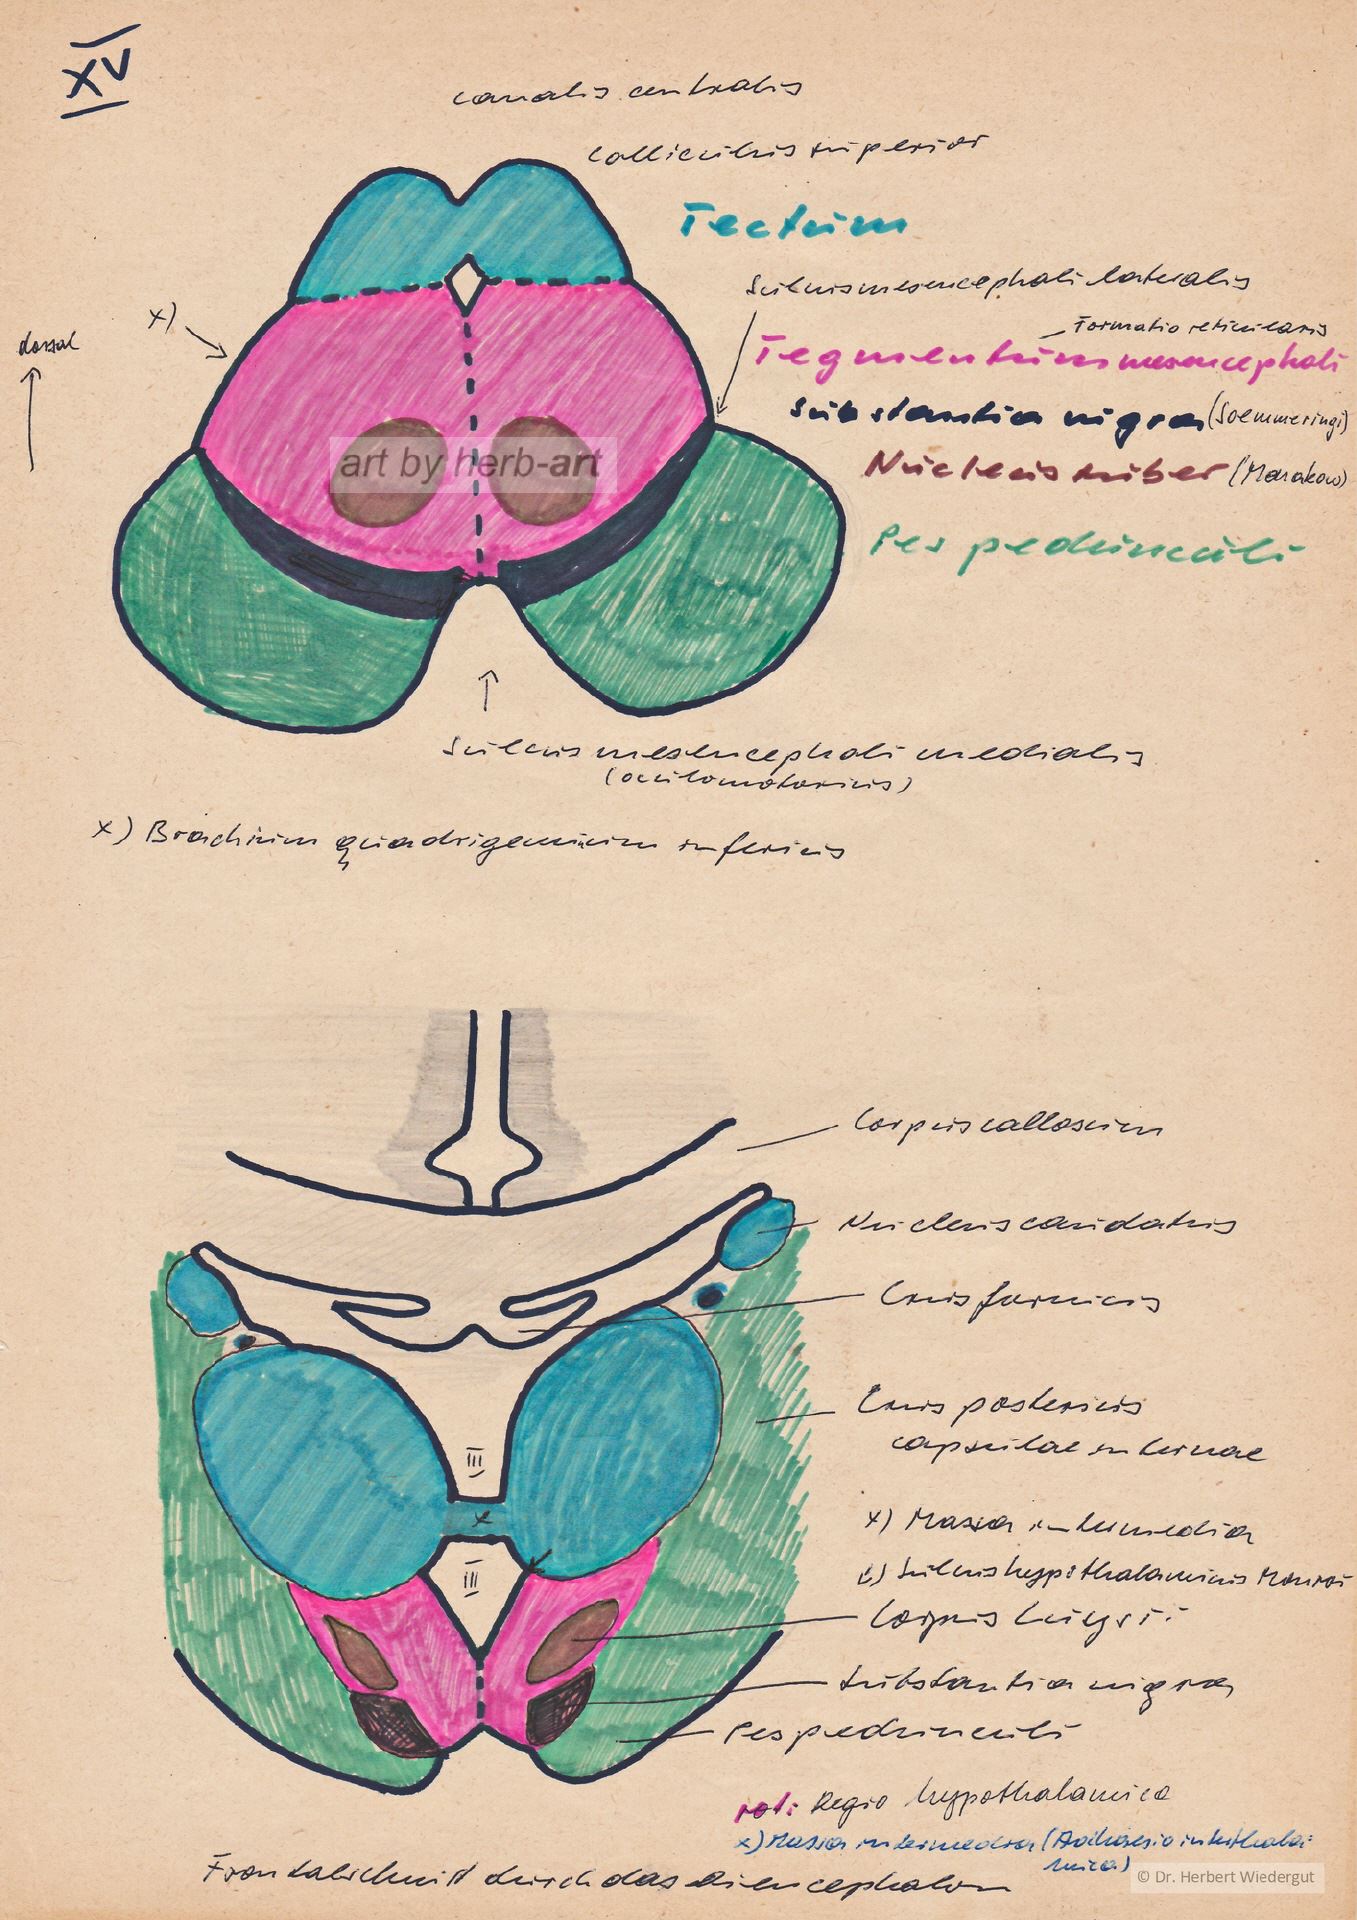 XV
canalis centralis
Colliculus superior
Tectum
Sulcus mesencephali lateralis
x)
Formatio reticularis
dorsal
Tegmentum mesencephali
Substantia nigra (Soemmeringi)
art by herb-art
Nucleus ruber (Monakow)
Pes pedunculi
Sulcus mesencephali medialis
(oculomotorius)
x) Brachium quadrigeminum inferius
Corpus callosum
Nucleus caudatus
Crus fornicis
Crus posterius
capsulae internae
III
x
x) Massa intermedia
III
Sulcus hypothalamicus Monroi
Corpus Luysii
Substantia nigra
Pes pedunculi
rot: Regio hypothalamica
x) Massa intermedia (Adhaesio interthala-
mica)
Frontalschnitt durch das Diencephalon
© Dr. Herbert Wiedergut